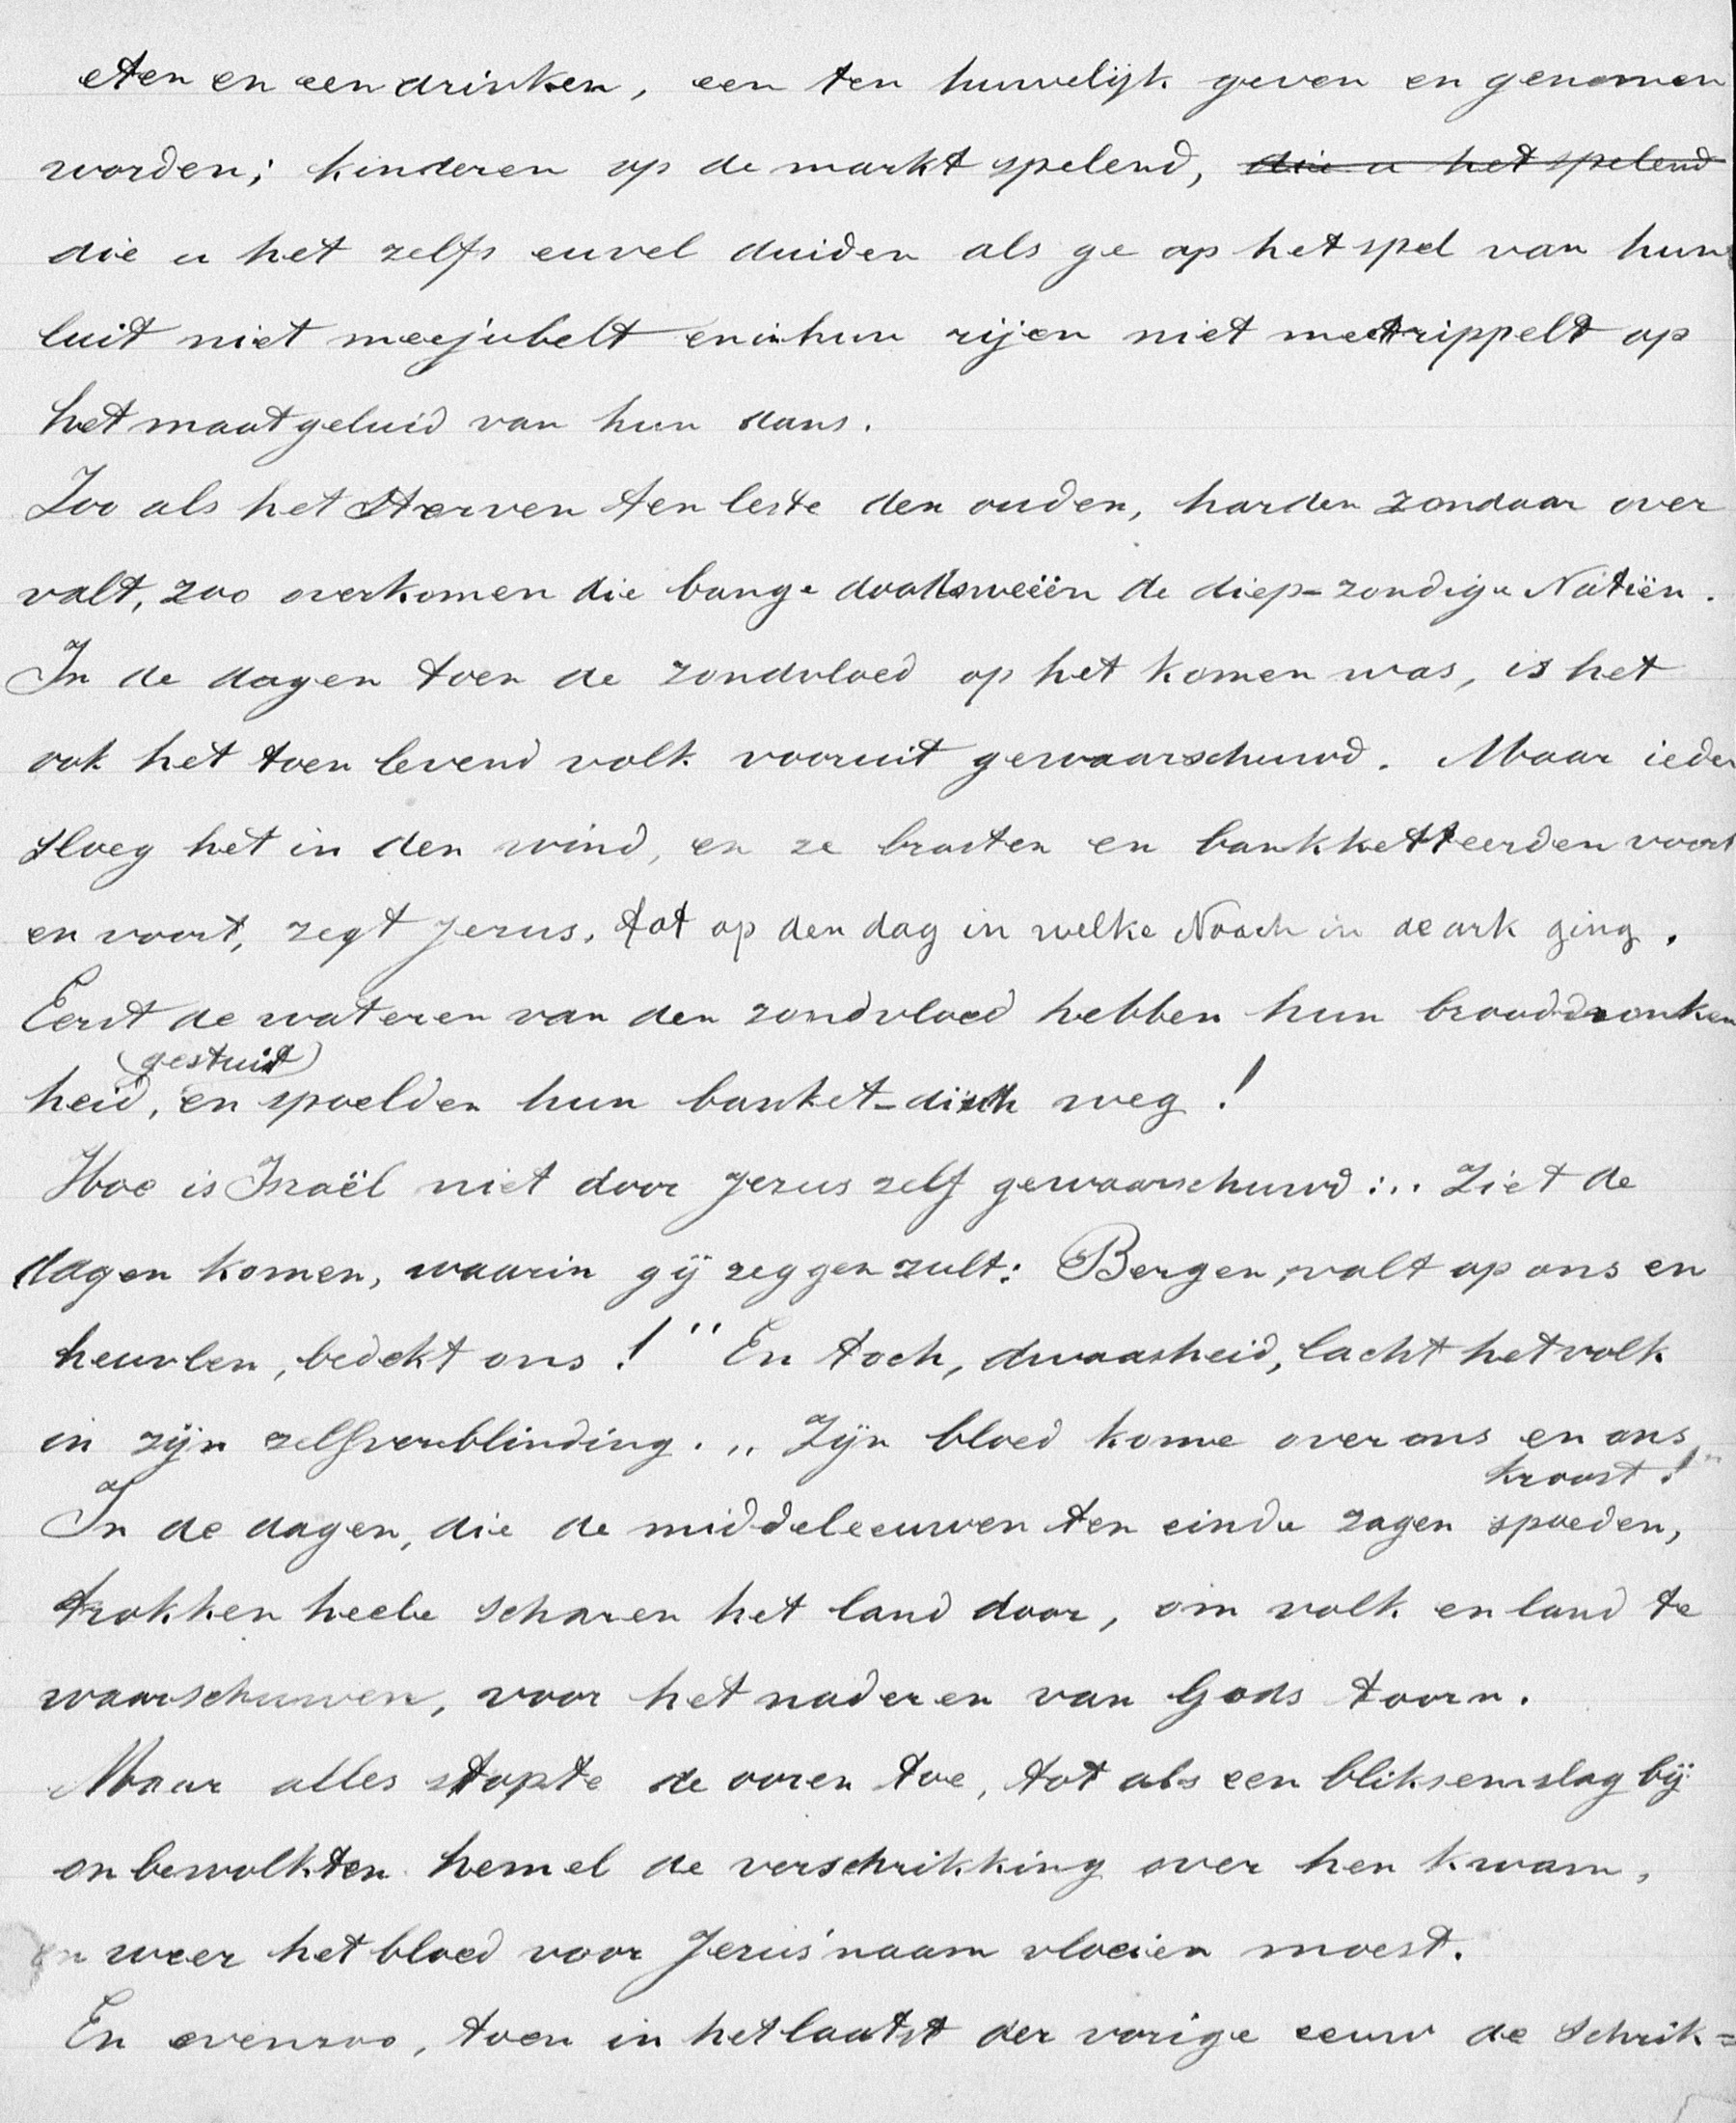 eten en een drinken, een ten huwelijk geven en genomen
worden; kinderen op de markt spelend, die u het spelend
die u het zelfs euvel duiden als ge op het spel van hun
luit niet meejubelt en in hun rijen niet meetrippelt op
het maatgeluid van hun dans.
Zoo als het sterven ten leste den ouden, harden zondaar over
valt, zoo overkomen die bange doodsweeën de diep-zondige Natiën.
In de dagen toen de zondvloed op het komen was, is het
ook het toen levend volk vooruit gewaarschuwd. Maar ieder
sloeg het in den wind, en ze brasten en bankketteerden voort
en voort, zegt Jezus, tot op den dag in welke Noach in de ark ging.
Eerst de wateren van den zondvloed hebben hun brooddronken
(gestuit)
heid, en spoelden hun banket-disch weg!
Hoe is Israël niet door Jezus zelf gewaarschuwd: ,, Ziet de
dagen komen, waarin gij zeggen zult: Bergen, valt op ons en
heuvlen, bedekt ons!" En toch, dwaasheid, lacht het volk
in zijn zelfverblinding. ,, Zijn bloed kome over ons en ons
kroost!"
In de dagen, die de middeleeuwen ten einde zagen spoeden,
trokken heele scharen het land door, om volk en land te
waarschuwen, voor het naderen van Gods toorn.
Maar alles stopte de ooren toe, tot als een bliksemslag bij
onbewolkten hemel de verschrikking over hen kwam,
en weer het bloed voor Jezus' naam vloeien moest.
En evenzoo, toen in het laatst der vorige eeuw de schrik=